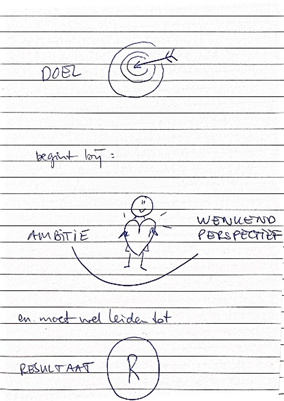 DOEL
begint bij:
AMBITIE
WENKEND
PERSPECTIEF
en moet wel leiden tot
RESULTAAT
R